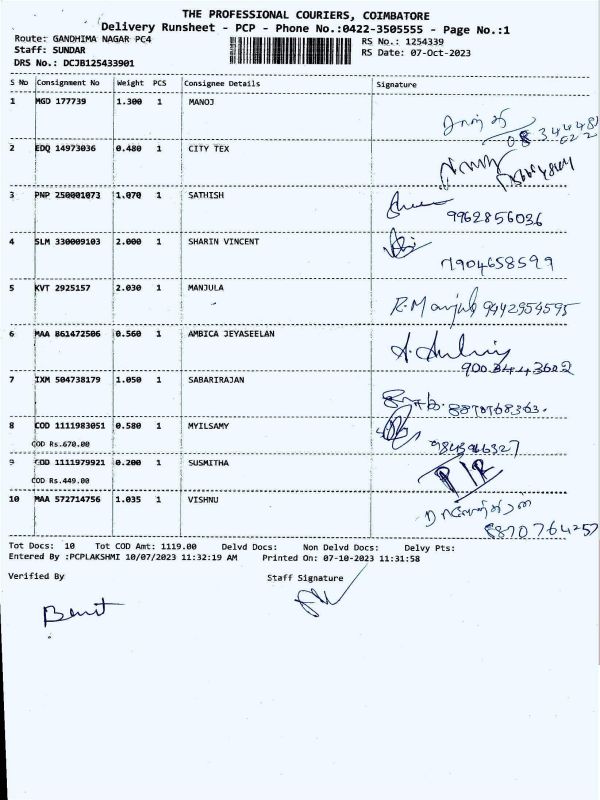 THE PROFESSIONAL COURIERS, COIMBATORE
Delivery Runsheet - PCP - Phone No.:0422-3505555 - Page No.:1
Route: GANDHIMA NAGAR PC4 RS No.: 1254339
Staff: SUNDAR RS Date: 07-Oct-2023
DRS No.: DCJB125433901
S No Consignment No Weight PCS Consignee Details Signature
1 MGD 177739 1.300 1 MANOJ
2 EDQ 14973036 0.480 1 CITY TEX
3 PNP 250001073 1.070 1 SATHISH
9962856036
4 SLM 330009103 2.000 1 SHARIN VINCENT
7904658599
5 KVT 2925157 2.030 1 MANJULA
R. Manjula 9442954595
6 MAA 861472506 0.560 1 AMBICA JEYASEELAN
7 IXM 504738179 1.050 1 SABARIRAJAN
8870768363.
8 COD 1111983051 0.580 1 MYILSAMY
COD Rs.670.00
9 COD 1111979921 0.200 1 SUSMITHA
COD Rs.449.00
10 MAA 572714756 1.035 1 VISHNU
8870764257
Tot Docs: 10 Tot COD Amt: 1119.00 Delvd Docs: Non Delvd Docs: Delvy Pts:
Entered By :PCPLAKSHMI 10/07/2023 11:32:19 AM Printed On: 07-10-2023 11:31:58
Verified By Staff Signature